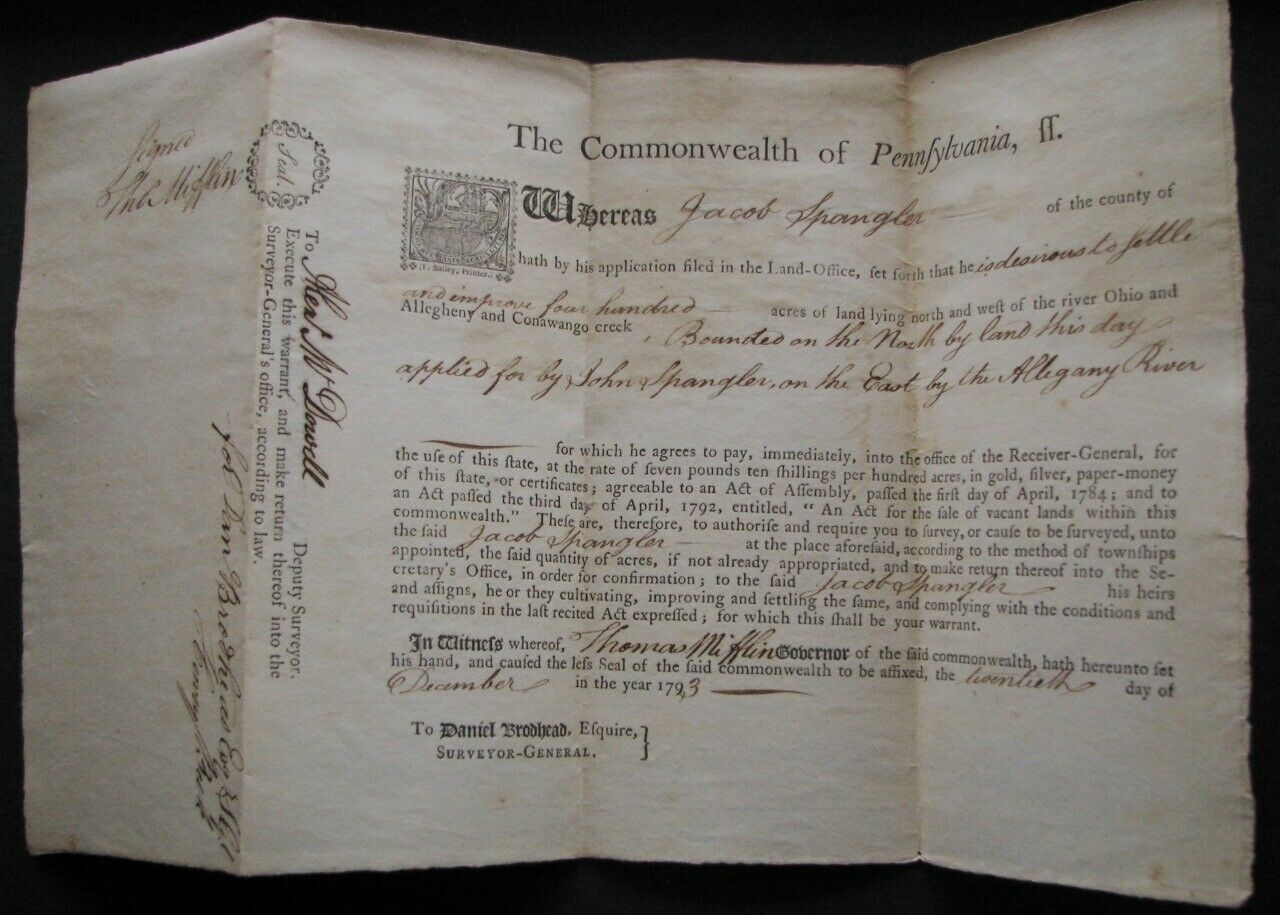 The Commonwealth of Pennſylvania, ſſ.
Whereas Jacob Spangler of the county of
(F. Bailey, Printer.)
hath by his application filed in the Land-Office, ſet forth that he is desirous to settle
and improve four hundred acres of land lying north and weſt of the river Ohio and
Allegheny and Conawango creek, Bounded on the North by land this day
applied for by John Spangler, on the East by the Allegany River
for which he agrees to pay, immediately, into the office of the Receiver-General, for
the uſe of this ſtate, at the rate of ſeven pounds ten ſhillings per hundred acres, in gold, ſilver, paper-money
of this ſtate, or certificates; agreeable to an Act of Aſſembly, paſſed the firſt day of April, 1784; and to
an Act paſſed the third day of April, 1792, entitled, “ An Act for the ſale of vacant lands within this
commonwealth.” Theſe are, therefore, to authoriſe and require you to ſurvey, or cauſe to be ſurveyed, unto
the ſaid Jacob Spangler at the place aforeſaid, according to the method of townſhips
appointed, the ſaid quantity of acres, if not already appropriated, and to make return thereof into the Se-
cretary's Office, in order for confirmation; to the ſaid Jacob Spangler his heirs
and aſſigns, he or they cultivating, improving and ſettling the ſame, and complying with the conditions and
requiſitions in the laſt recited Act expreſſed; for which this ſhall be your warrant.
In Witneſs whereof, Thomas Mifflin Governor of the ſaid commonwealth, hath hereunto ſet
his hand, and cauſed the leſs Seal of the ſaid commonwealth to be affixed, the twentieth day of
December in the year 1793
To Daniel Brodhead, Eſquire,
SURVEYOR-GENERAL.
Signed
Tho Mifflin
Seal.
To Alexr. McDowell Deputy Surveyor.
Execute this warrant, and make return thereof into the
Surveyor-General's office, according to law.
for Danl Brodhead Esqr S.G.